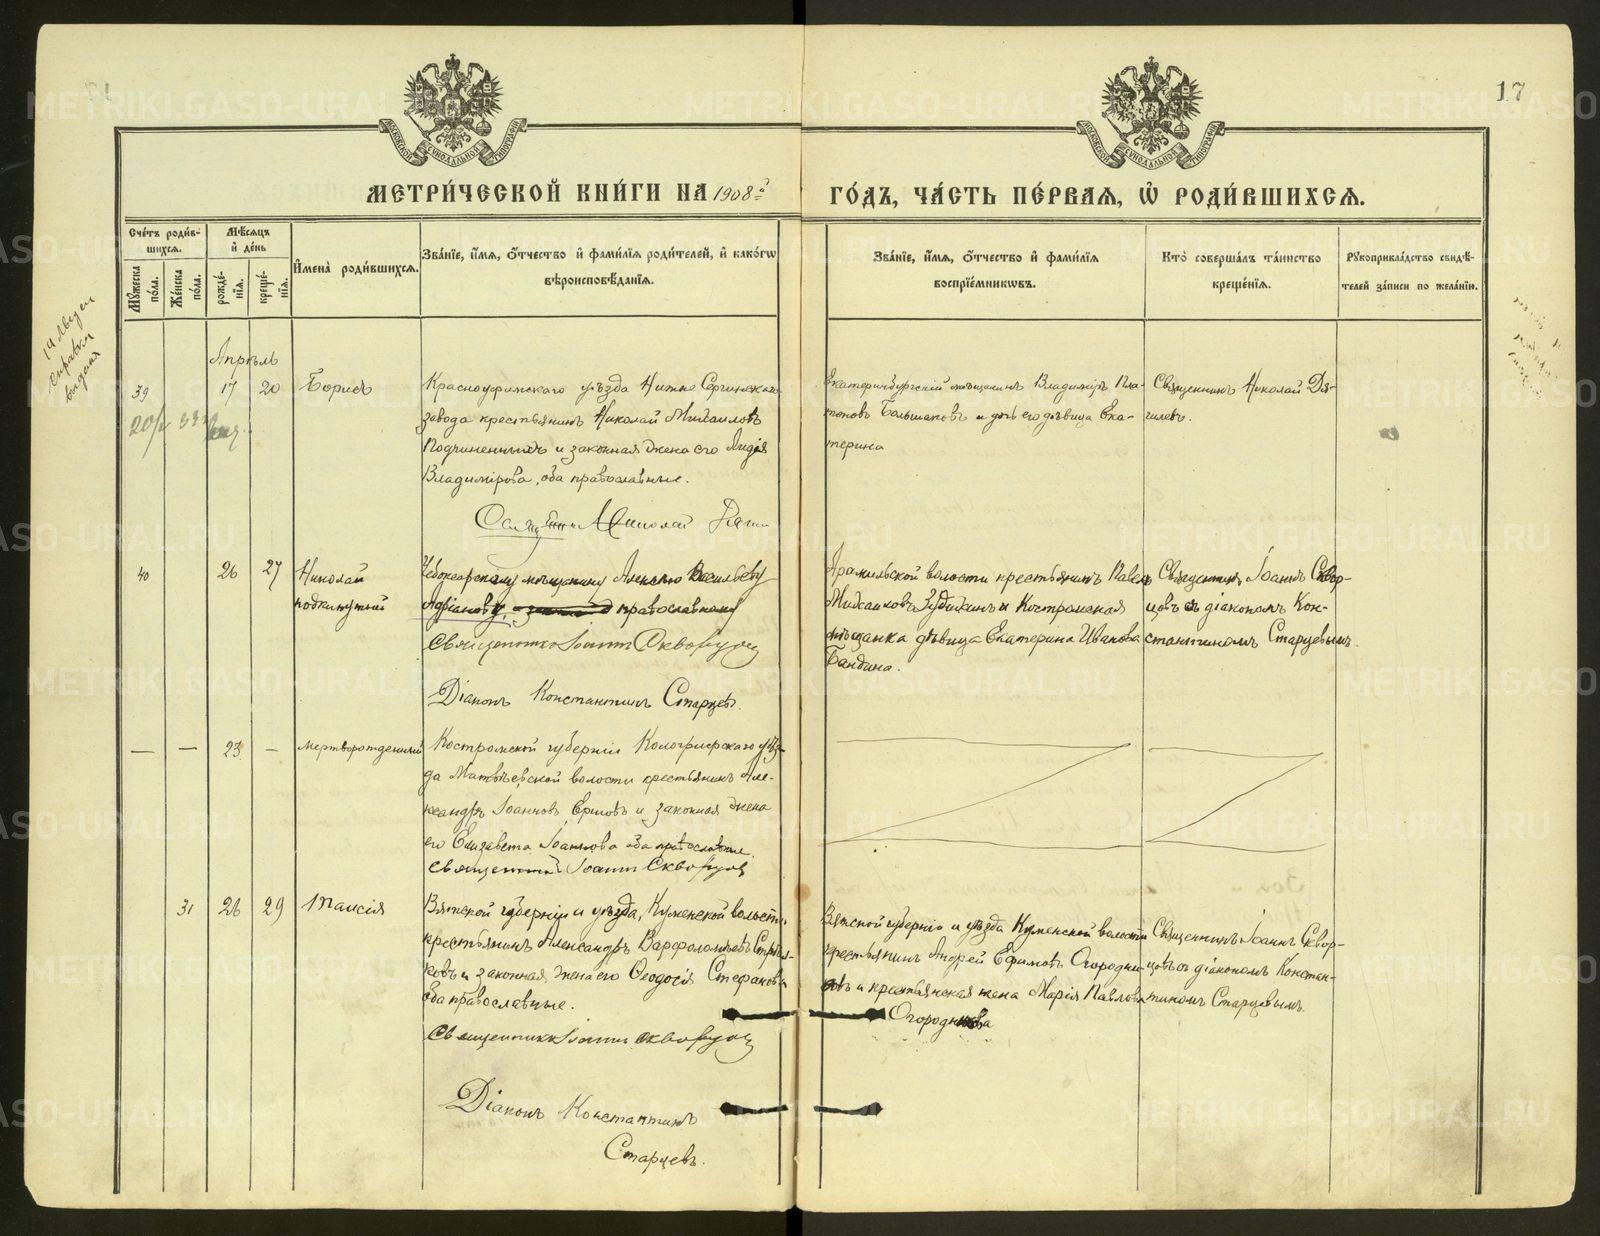 17
МОСКОВСКОЙ СѴНОДАЛЬНОЙ ТИПОГРАФІИ
МОСКОВСКОЙ СѴНОДАЛЬНОЙ ТИПОГРАФІИ
МЕТРИ́ЧЕСКОЙ КНИ́ГИ НА 1908й ГО́ДЪ, ЧА́СТЬ ПЕ́РВАѦ, Ѡ РОДИ́ВШИХСѦ.
Сче́тъ роди́в-
шихсѧ.
Мꙋ́жеска по́ла.
Же́нска по́ла.
Мѣ́сѧцъ
и҆ де́нь
рожде́-
нїѧ.
креще́-
нїѧ.
И҆мена̀ роди́вшихсѧ.
Зва́нїе, и҆́мѧ, ѻ҆́тчество и҆ фами́лїѧ роди́телей, и҆ како́гѡ
вѣроисповѣ́данїѧ.
Зва́нїе, и҆́мѧ, ѻ҆́тчество и҆ фами́лїѧ
воспрїе́мникѡвъ.
Кто̀ соверша́лъ та́инство
креще́нїѧ.
Рꙋкоприкла́дство свидѣ́-
телей за́писи по жела́нїю.
справка
выдана
Апрѣль
39
17
20
Борисъ
Красноуфимскаго уѣзда Нижне Сергинскаго
завода крестьянинъ Николай Михаиловъ
и законная жена его Лидія
Владимірова, оба православные.
Николай
Екатеринбургскій мѣщанинъ Владиміръ Пла-
тоновъ Большаковъ и дочь его дѣвица Ека-
терина
Священникъ Николай Дя-
гилевъ.
40
26
27
Николай
подкинутый
Чебоксарскому мѣщанину Алексѣю Васильеву
Адріанову, православному
Священникъ Іоаннъ Скворцовъ
Діаконъ Константинъ Старцевъ.
Арамильской волости крестьянинъ Павелъ
Михаиловъ и Костромская
мѣщанка дѣвица Екатерина Иванова
Бандина.
Священникъ Іоаннъ Сквор-
цовъ съ діакономъ Кон-
стантиномъ Старцевымъ.
—
—
23
—
мертворожденный
Костромской губерніи Кологривскаго уѣз-
да Матвѣевской волости крестьянинъ Але-
ксандръ Іоанновъ Ершовъ и законная жена
его Елизавета Іоаннова оба православные.
Священникъ Іоаннъ Скворцовъ
31
26
29
Таисія
Вятской губерніи и уѣзда, Куменской волости
крестьянинъ Александръ Варфоломѣевъ Стрѣл-
ковъ и законная жена его Ѳеодосія Стефанова
оба православные.
Священникъ Іоаннъ Скворцовъ
Діаконъ Константинъ
Старцевъ.
Вятской губерніи и уѣзда Куменской волости
крестьянинъ Андрей Ефимовъ Огородни-
ковъ и крестьянская жена Марія Павлова
Огородникова
Священникъ Іоаннъ Сквор-
цовъ съ діакономъ Констан-
тиномъ Старцевымъ.
METRIKI.GASO-URAL.RU